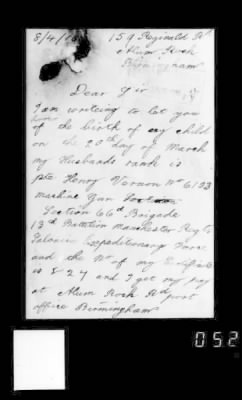 8/4/18 159 Reginald Rd
Alum Rock
Birmingham
Dear Sir
I am writeing to let you
know
of the birth of my child
on the 20th day of March
my Husbands rank is
Pte Henry Vernon No 6123
machine Gun
Section 66th Brigade
13th Battalion manchester Regt
Salonica Expeditionary Force
and the No of my
is 827 and I get my pay
at Alum Rock Rd post
office Birmingham
052